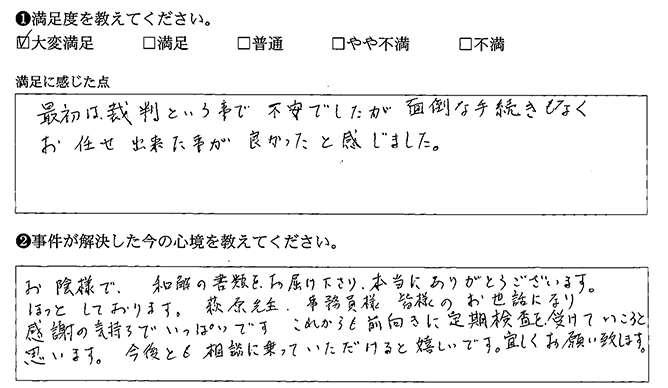 ❶満足度を教えてください。
☑大変満足 □満足 □普通 □やや不満 □不満
満足に感じた点
最初は、裁判という事で 不安でしたが 面倒な手続きもなく
お任せ出来た事が 良かったと感じました。
❷事件が解決した今の心境を教えてください。
お陰様で、和解の書類を、お届け下さり、本当にありがとうございます。
ほっと しております。萩原先生、事務員様 皆様のお世話になり
感謝の気持ちでいっぱいです これからも前向きに定期検査を受けていこうと
思います。今後とも相談に乗っていただけると嬉しいです。宜しくお願い致します。